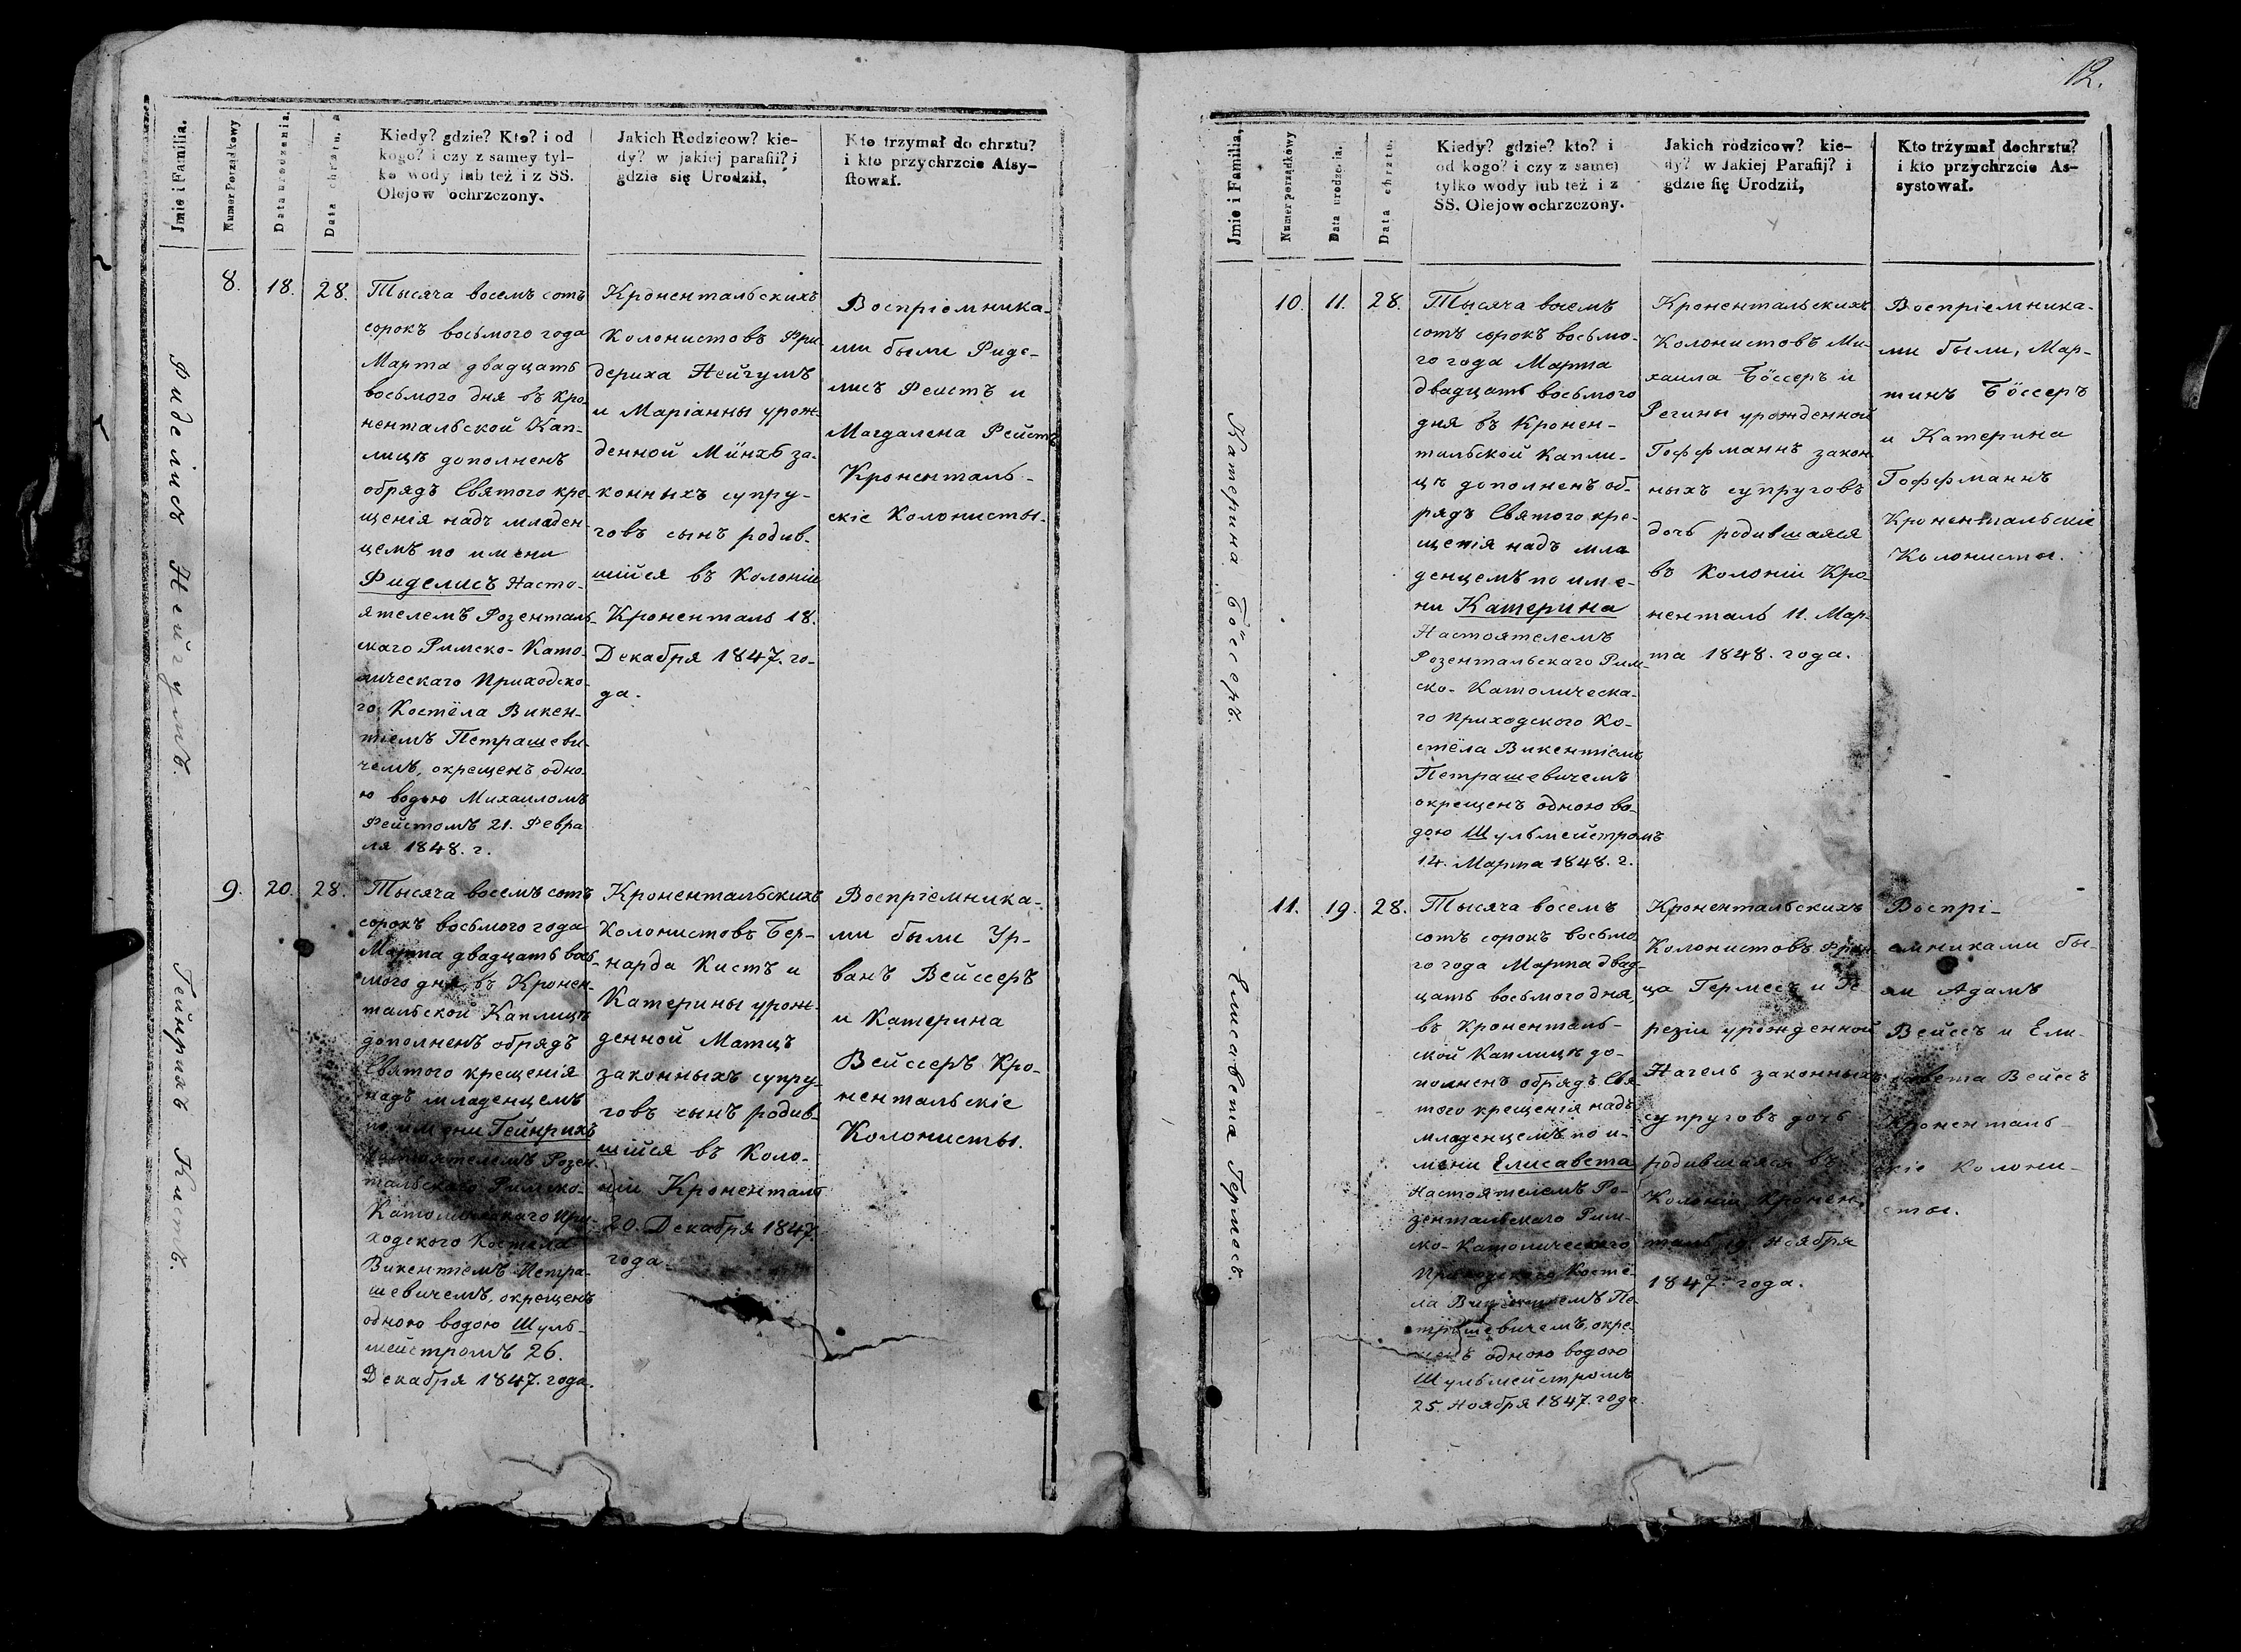 Jmie i Familia.
Numer Porządkowy
Data urodzenia.
Data chrztu.
Kiedy? gdzie? Kto? i od
kogo? i czy z samey tyl-
ko wody lub też i z SS.
Olejow ochrzczony.
Jakich Rodzicow? kie-
dy? w jakiej parafii? i
gdzie się Urodził.
Kto trzymał do chrztu?
i kto przychrzcie Afsy-
ftował.
Фиделисъ Нейгумъ.
8.
18.
28.
Тысяча восемъ сотъ
сорокъ восьмого года
Марта двадцать
восьмого дня въ Кро-
нентальской Кап-
лицѣ дополненъ
обрядъ Святого кре-
щенія надъ младен-
цемъ по имени
Фиделисъ Насто-
ятелемъ Розенталь-
скаго Римско-Като-
лическаго Приходско-
го Костёла Викен-
тіемъ Петрашеви-
чемъ, окрещенъ одно-
ю водою Михаиломъ
Фейстомъ 21. Февра
ля 1848. г.
Кронентальскихъ
Колонистовъ Фри-
дериха Нейгумъ
и Маріанны урож-
денной Мӥнхъ за-
конныхъ супру-
говъ сынъ родив-
шійся въ Колоніи
Кроненталь 18.
Декабря 1847. го-
да.
Воспріемника-
ми были Фиде-
лисъ Феистъ и
Магдалена Фейстъ
Кроненталь-
скіе Колонисты.
Гейнрихъ Кистъ.
9.
20.
28.
Тысяча восемъ сотъ
сорокъ восьмого года
Марта двадцать вось-
мого дня въ Кронен-
тальской Каплицѣ
дополненъ обрядъ
Святого крещенія
надъ младенцемъ
по имени Гейнрихъ
Настоятелемъ Розен-
тальскаго Римско-
Католическаго При-
ходского Костёла
Викентіемъ Петра-
шевичемъ, окрещенъ
одною водою Шуль-
мейстромъ 26.
Декабря 1847. года.
Кронентальскихъ
Колонистовъ Бер-
нарда Кистъ и
Катерины урож-
денной Матцъ
законныхъ супру-
говъ сынъ родив-
шійся въ Коло-
ніи Кроненталь
20. Декабря 1847.
года.
Воспріемника-
ми были Ур-
банъ Вейссеръ
и Катерина
Вейссеръ Кро-
нентальскіе
Колонисты.
12.
Jmie i Familia,
Numer porządkowy
Data urodzenia.
Data chrztu.
Kiedy? gdzie? kto? i
od kogo? i czy z samej
tylko wody lub też i z
SS. Olejow ochrzczony.
Jakich rodzicow? kie-
dy? w Jakiej Parafij? i
gdzie fię Urodził,
Kto trżymał dochrztu?
i kto przychrzcie As-
systował.
Катерина Бöссеръ.
10.
11.
28.
Тысяча восемъ
сотъ сорокъ восьмо-
го года Марта
двадцать восьмого
дня въ Кронен-
тальской Капли-
цѣ дополненъ об-
рядъ Святого кре-
щенія надъ мла
денцемъ по име-
ни Катерина
Настоятелемъ
Розентальскаго Рим-
ско-Католическа-
го Приходского Ко-
стёла Викентіемъ
Петрашевичемъ
окрещенъ одною во-
дою Шульмейстромъ
14. Марта 1848. г.
Кронентальскихъ
Колонистовъ Ми-
хаила Бöссеръ и
Регины урожденной
Гоффманнъ закон-
ныхъ супруговъ
дочь родившаяся
въ Колоніи Кро-
ненталь 11. Мар-
та 1848. года.
Воспріемника-
ми были, Мар-
тинъ Бöссеръ
и Катерина
Гоффманнъ
Кронентальскіе
Колонисты.
Елисавета Гермесъ.
11.
19.
28.
Тысяча восемъ
сотъ сорокъ восьмо-
го года Марта двад-
цать восьмого дня
въ Кроненталь-
ской Каплицѣ до-
полненъ обрядъ Свя-
того крещенія надъ
младенцемъ по и-
мени Елисавета
Настоятелемъ Ро-
зентальскаго Рим-
ско-Католическаго
Приходского Костё-
ла Викентіемъ Пе-
трашевичемъ, окре-
щенъ одною водою
Шульмейстромъ
25. Ноября 1847. года.
Кронентальскихъ
Колонистовъ Фран-
ца Гермесъ и Те-
резіи урожденной
Нагель законныхъ
супруговъ дочь
родившаяся въ
Колоніи Кронен-
таль 19. Ноября
1847. года.
Воспрі-
емниками бы-
ли Адамъ
Вейсъ и Ели-
савета Вейсъ
Кроненталь-
скіе Колони-
сты.